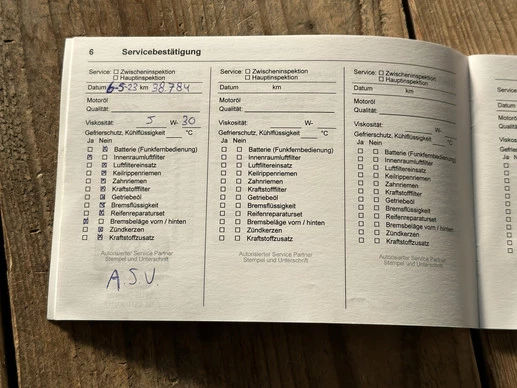 6 Servicebestätigung
Service: ☐ Zwischeninspektion
☐ Hauptinspektion
Datum 6-5-23 km 38.784
Motoröl
Qualität:
Viskosität: 5 W- 30
Gefrierschutz, Kühlflüssigkeit °C
Ja Nein
Batterie (Funkfernbedienung)
Innenraumluftfilter
Luftfiltereinsatz
Keilrippenriemen
Zahnriemen
Kraftstofffilter
Getriebeöl
Bremsflüssigkeit
Reifenreparaturset
Bremsbeläge vorn / hinten
Zündkerzen
Kraftstoffzusatz
Autorisierter Service Partner
Stempel und Unterschrift
A.S.U.
Service: ☐ Zwischeninspektion
☐ Hauptinspektion
Datum km
Motoröl
Qualität:
Viskosität: W-
Gefrierschutz, Kühlflüssigkeit °C
Ja Nein
Batterie (Funkfernbedienung)
Innenraumluftfilter
Luftfiltereinsatz
Keilrippenriemen
Zahnriemen
Kraftstofffilter
Getriebeöl
Bremsflüssigkeit
Reifenreparaturset
Bremsbeläge vorn / hinten
Zündkerzen
Kraftstoffzusatz
Autorisierter Service Partner
Stempel und Unterschrift
Service: ☐ Zwischeninspektion
☐ Hauptinspektion
Datum km
Motoröl
Qualität:
Viskosität: W-
Gefrierschutz, Kühlflüssigkeit °C
Ja Nein
Batterie (Funkfernbedienung)
Innenraumluftfilter
Luftfiltereinsatz
Keilrippenriemen
Zahnriemen
Kraftstofffilter
Getriebeöl
Bremsflüssigkeit
Reifenreparaturset
Bremsbeläge vorn / hinten
Zündkerzen
Kraftstoffzusatz
Autorisierter Service Partner
Stempel und Unterschrift